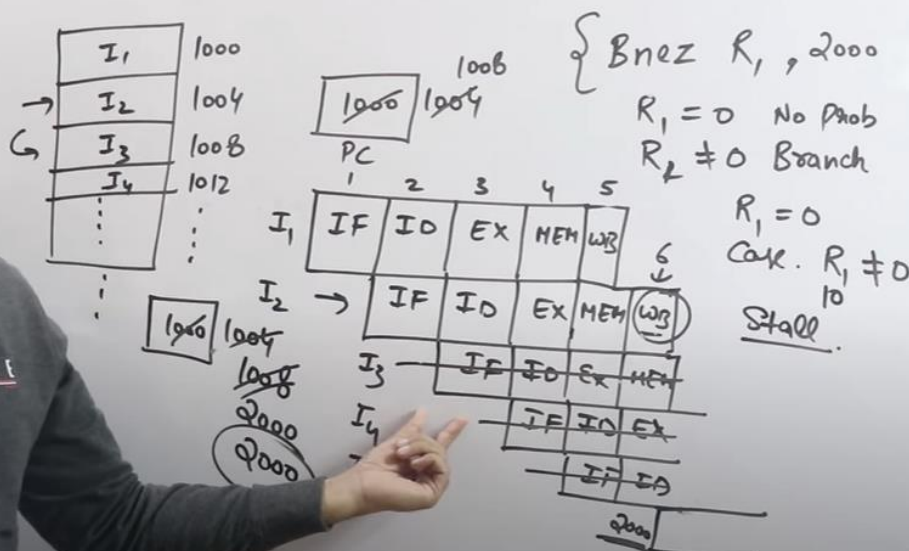 I1 1000
I2 1004
I3 1008
I4 1012
1008
1000 1004
PC
{ Bnez R1 , 2000
R1 = 0 No Prob
R2 ≠ 0 Branch
R1 = 0
Case. R1 ≠ 0
10
Stall.
1 2 3 4 5
I1 IF ID EX MEM WB
6
I2 → IF ID EX MEM WB
I3 IF ID EX MEM
I4 IF ID EX
IF ID
2000
1000 1004
1008
2000
2000
E